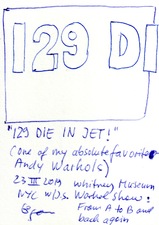 129 DI
"129 DIE IN JET!"
(one of my absolute favorite
Andy Warhols)
23 III 2019 Whitney Museum
NYC w/J.S. Warhol show:
From A to B and
back again